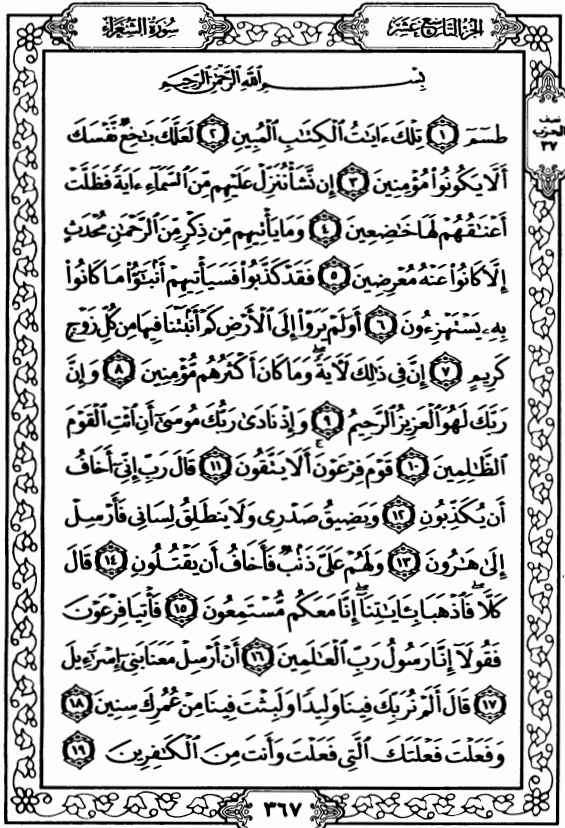 الجزء التاسع عشر
سورة الشعراء
نصف
الحزب
٣٧
بِسْمِ ٱللَّهِ ٱلرَّحْمَٰنِ ٱلرَّحِيمِ
طسٓمٓ ١ تِلْكَ ءَايَٰتُ ٱلْكِتَٰبِ ٱلْمُبِينِ ٢ لَعَلَّكَ بَٰخِعٌ نَّفْسَكَ
أَلَّا يَكُونُوا۟ مُؤْمِنِينَ ٣ إِن نَّشَأْ نُنَزِّلْ عَلَيْهِم مِّنَ ٱلسَّمَآءِ ءَايَةً فَظَلَّتْ
أَعْنَٰقُهُمْ لَهَا خَٰضِعِينَ ٤ وَمَا يَأْتِيهِم مِّن ذِكْرٍ مِّنَ ٱلرَّحْمَٰنِ مُحْدَثٍ
إِلَّا كَانُوا۟ عَنْهُ مُعْرِضِينَ ٥ فَقَدْ كَذَّبُوا۟ فَسَيَأْتِيهِمْ أَنۢبَٰٓؤُا۟ مَا كَانُوا۟
بِهِۦ يَسْتَهْزِءُونَ ٦ أَوَلَمْ يَرَوْا۟ إِلَى ٱلْأَرْضِ كَمْ أَنۢبَتْنَا فِيهَا مِن كُلِّ زَوْجٍ
كَرِيمٍ ٧ إِنَّ فِى ذَٰلِكَ لَءَايَةً ۖ وَمَا كَانَ أَكْثَرُهُم مُّؤْمِنِينَ ٨ وَإِنَّ
رَبَّكَ لَهُوَ ٱلْعَزِيزُ ٱلرَّحِيمُ ٩ وَإِذْ نَادَىٰ رَبُّكَ مُوسَىٰٓ أَنِ ٱئْتِ ٱلْقَوْمَ
ٱلظَّٰلِمِينَ ١٠ قَوْمَ فِرْعَوْنَ ۚ أَلَا يَتَّقُونَ ١١ قَالَ رَبِّ إِنِّىٓ أَخَافُ
أَن يُكَذِّبُونِ ١٢ وَيَضِيقُ صَدْرِى وَلَا يَنطَلِقُ لِسَانِى فَأَرْسِلْ
إِلَىٰ هَٰرُونَ ١٣ وَلَهُمْ عَلَىَّ ذَنۢبٌ فَأَخَافُ أَن يَقْتُلُونِ ١٤ قَالَ
كَلَّا ۖ فَٱذْهَبَا بِـَٔايَٰتِنَآ ۖ إِنَّا مَعَكُم مُّسْتَمِعُونَ ١٥ فَأْتِيَا فِرْعَوْنَ
فَقُولَآ إِنَّا رَسُولُ رَبِّ ٱلْعَٰلَمِينَ ١٦ أَنْ أَرْسِلْ مَعَنَا بَنِىٓ إِسْرَٰٓءِيلَ
١٧ قَالَ أَلَمْ نُرَبِّكَ فِينَا وَلِيدًا وَلَبِثْتَ فِينَا مِنْ عُمُرِكَ سِنِينَ ١٨
وَفَعَلْتَ فَعْلَتَكَ ٱلَّتِى فَعَلْتَ وَأَنتَ مِنَ ٱلْكَٰفِرِينَ ١٩
٣٦٧